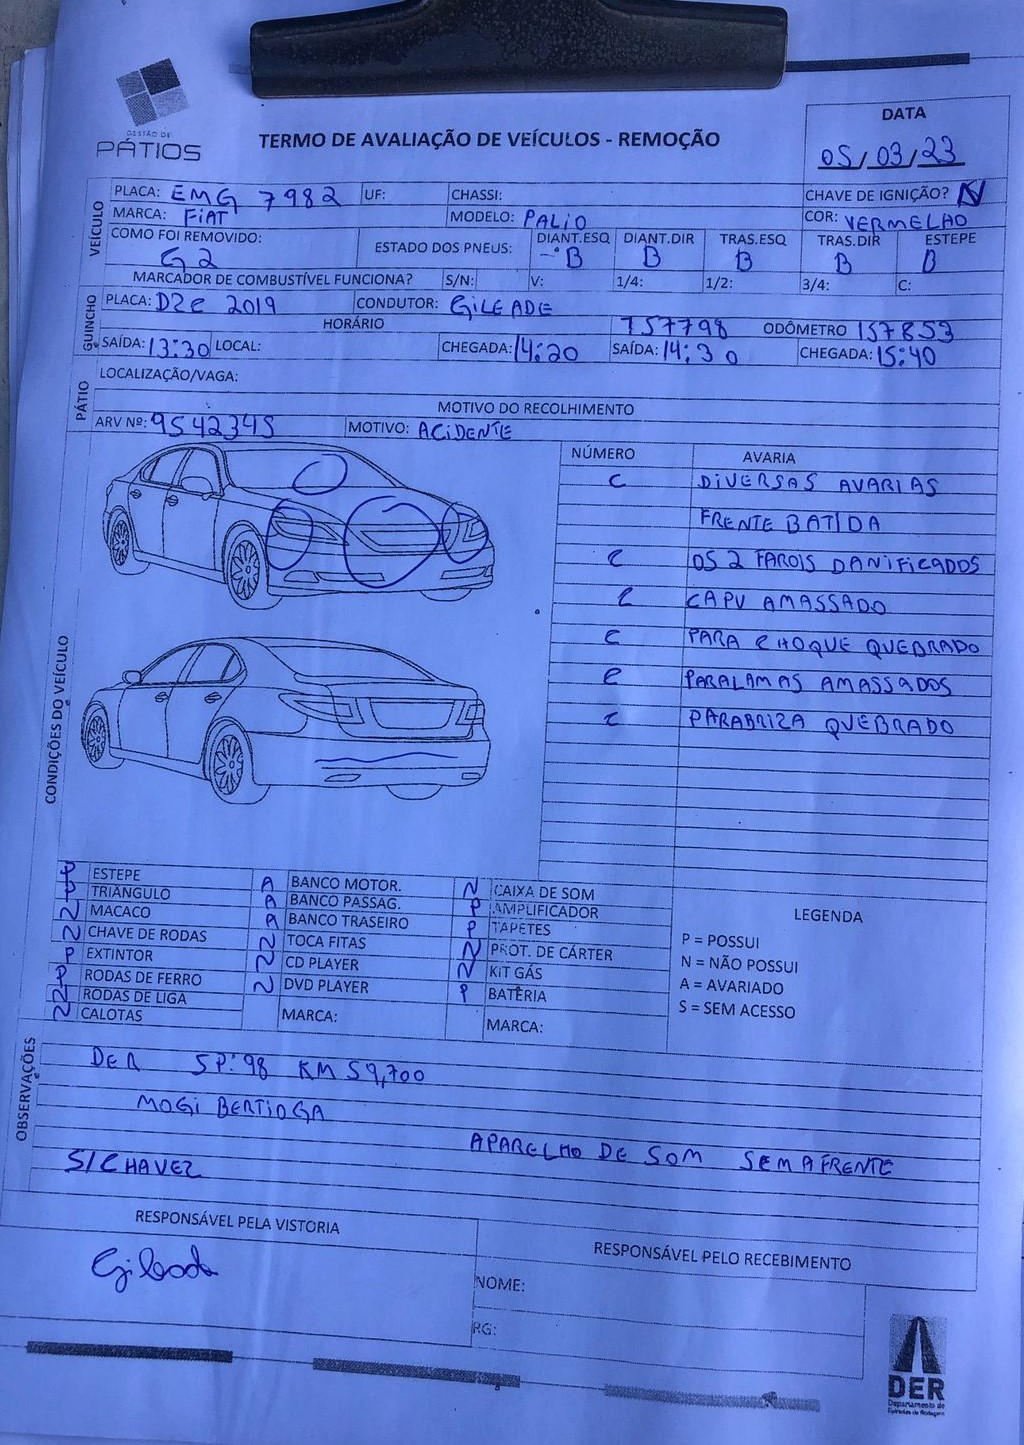 GESTÃO DE
PÁTIOS
TERMO DE AVALIAÇÃO DE VEÍCULOS - REMOÇÃO
DATA
05/03/23
VEÍCULO
PLACA: EMG 7982 UF: CHASSI: CHAVE DE IGNIÇÃO? N
MARCA: FIAT MODELO: PALIO COR: VERMELHO
COMO FOI REMOVIDO: G2 ESTADO DOS PNEUS: DIANT.ESQ B DIANT.DIR B TRAS.ESQ B TRAS.DIR B ESTEPE B
MARCADOR DE COMBUSTÍVEL FUNCIONA? S/N: V: 1/4: 1/2: 3/4: C:
GUINCHO
PLACA: DZC 2019 CONDUTOR: GILEADE
HORÁRIO 157798 ODÔMETRO 157853
SAÍDA: 13:30 LOCAL: CHEGADA: 14:20 SAÍDA: 14:30 CHEGADA: 15:40
PÁTIO
LOCALIZAÇÃO/VAGA:
MOTIVO DO RECOLHIMENTO
ARV Nº: 9542345 MOTIVO: ACIDENTE
CONDIÇÕES DO VEÍCULO
NÚMERO AVARIA
C DIVERSAS AVARIAS
FRENTE BATIDA
C OS 2 FAROIS DANIFICADOS
C CAPU AMASSADO
C PARA CHOQUE QUEBRADO
C PARALAMAS AMASSADOS
C PARABRIZA QUEBRADO
P ESTEPE A BANCO MOTOR. N CAIXA DE SOM
P TRIÂNGULO A BANCO PASSAG. P AMPLIFICADOR
N MACACO A BANCO TRASEIRO P TAPETES
N CHAVE DE RODAS N TOCA FITAS N PROT. DE CÁRTER
P EXTINTOR N CD PLAYER N KIT GÁS
P RODAS DE FERRO N DVD PLAYER P BATERIA
N RODAS DE LIGA MARCA: MARCA:
N CALOTAS
LEGENDA
P = POSSUI
N = NÃO POSSUI
A = AVARIADO
S = SEM ACESSO
OBSERVAÇÕES
DER SP:98 KM 59,700
MOGI BERTIOGA
APARELHO DE SOM SEM A FRENTE
S/CHAVEZ
RESPONSÁVEL PELA VISTORIA
RESPONSÁVEL PELO RECEBIMENTO
NOME:
RG:
DER
Departamento de
Estradas de Rodagem